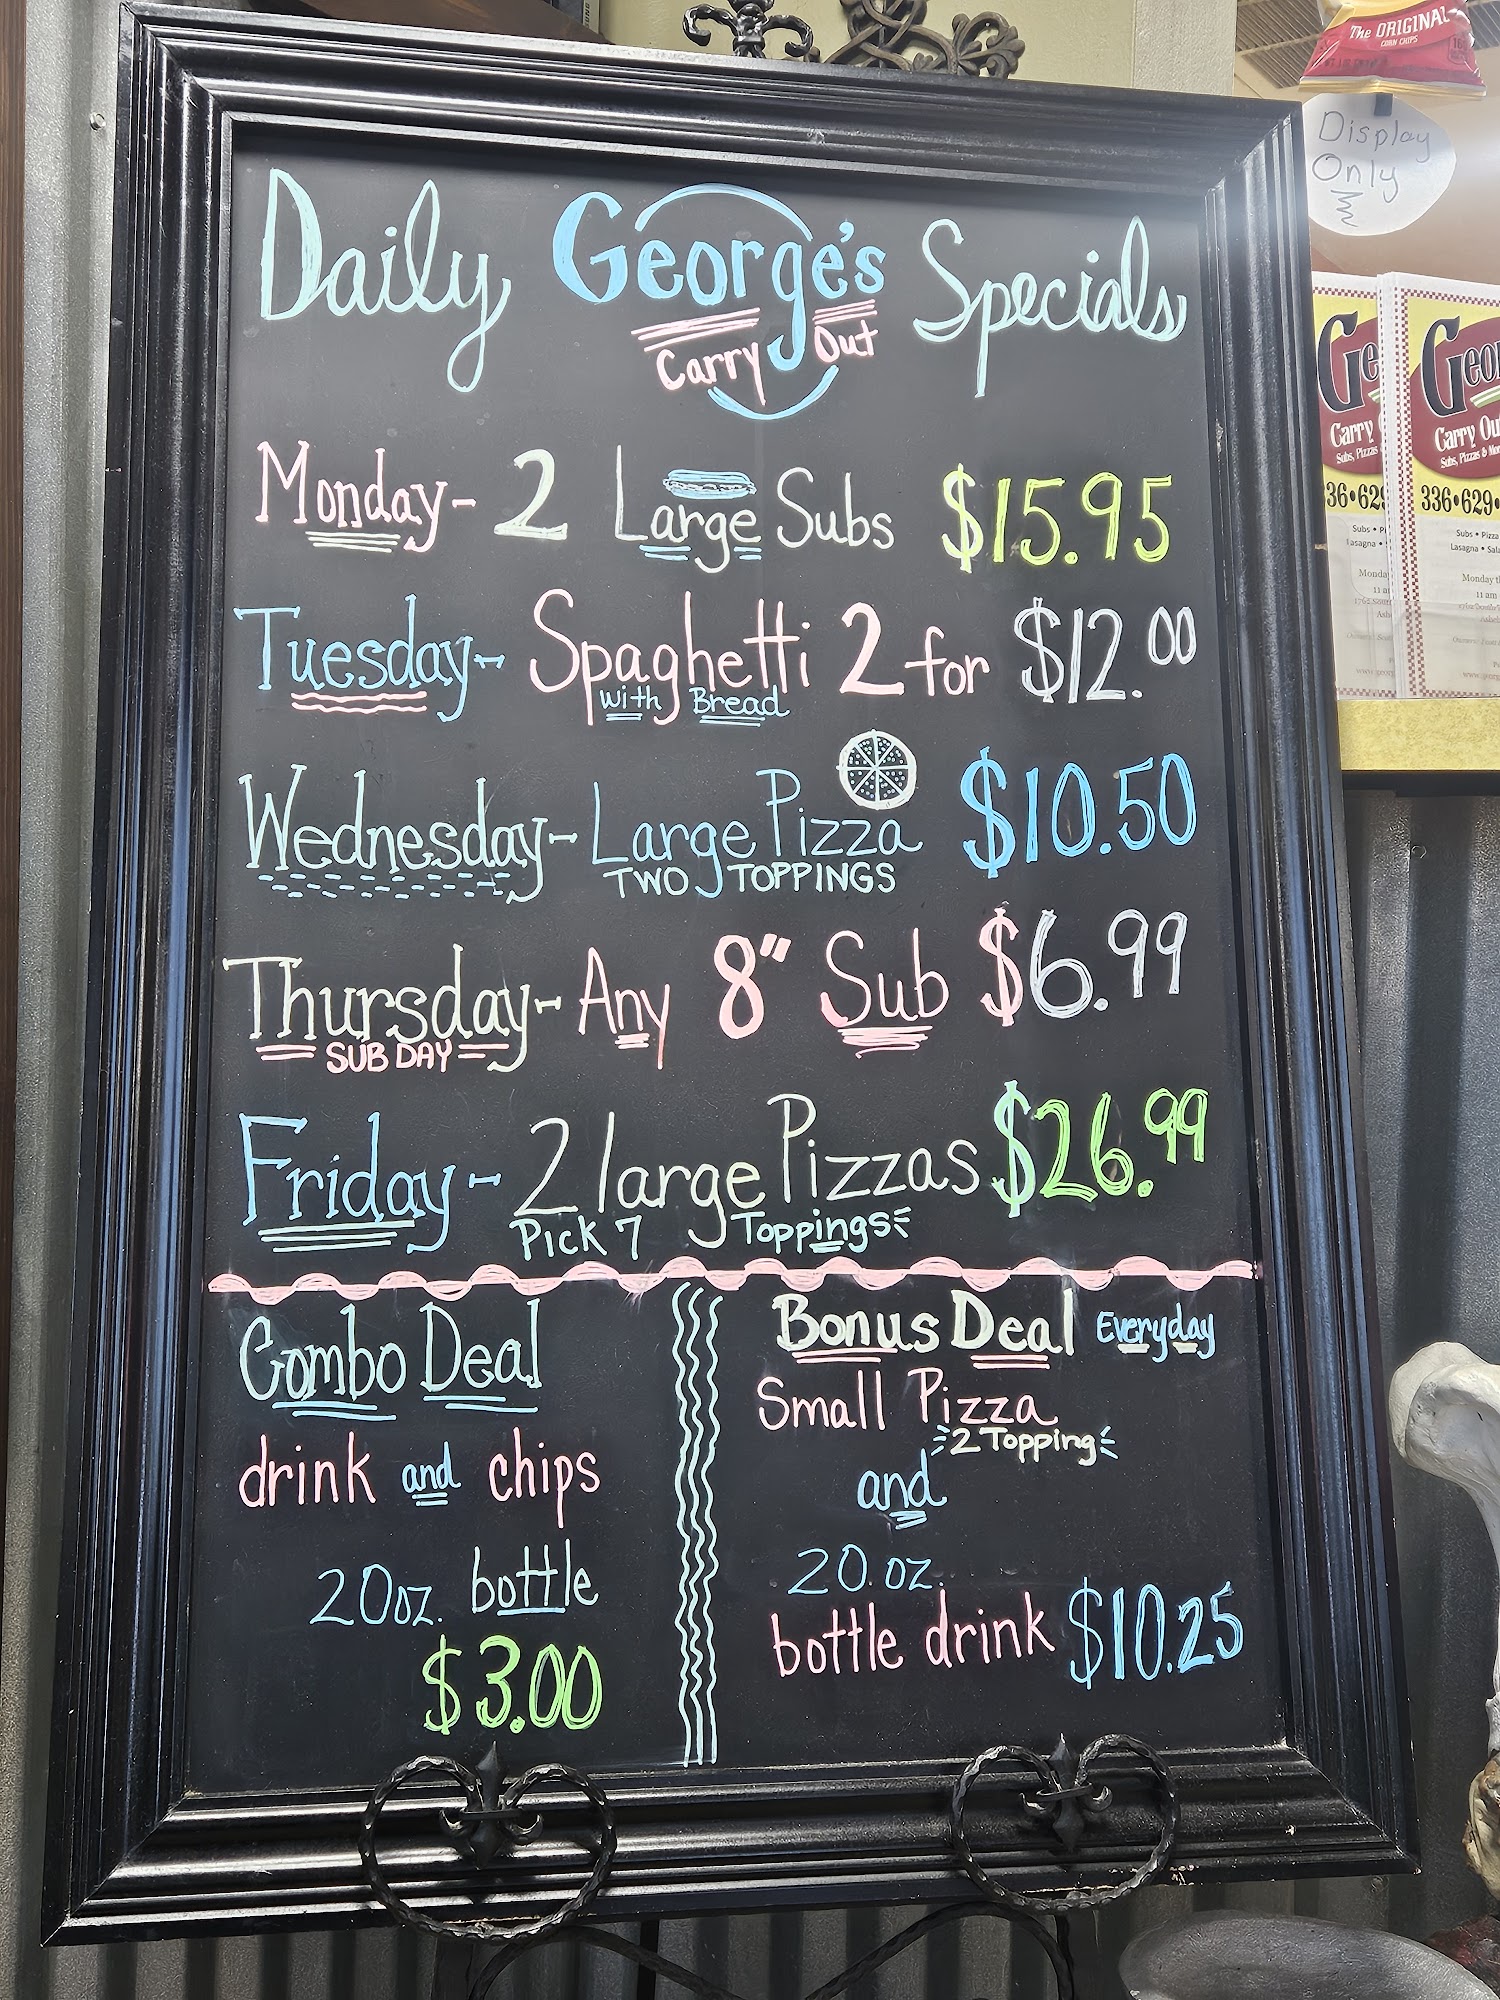 Daily George's Specials
Carry Out
Monday- 2 Large Subs $15.95
Tuesday- Spaghetti 2 for $12.00
with Bread
Wednesday- Large Pizza $10.50
TWO TOPPINGS
Thursday- Any 8" Sub $6.99
SUB DAY
Friday- 2 large Pizzas $26.99
Pick 7 Toppings
Combo Deal
drink and chips
20oz. bottle
$3.00
Bonus Deal Everyday
Small Pizza
2 Topping
and
20.oz.
bottle drink $10.25
The ORIGINAL
CORN CHIPS
Display
Only
Carry
Subs, Pizzas
Subs • P
Monday
Carry Ou
Subs, Pizzas & Mo
336•629•
Subs • Pizza
Lasagna • Sala
Monday th
11 am